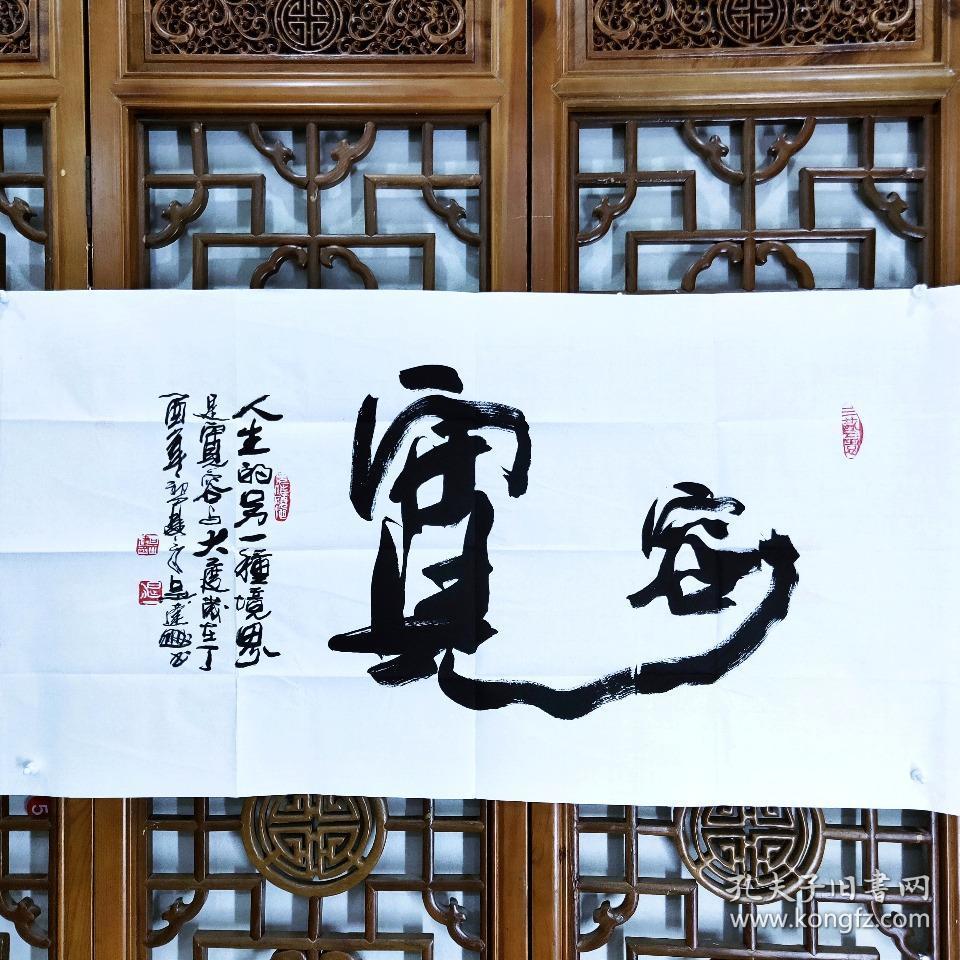 寬容
人生的另一種境界
是寬容与大度歲在丁
酉年初夏之吳達
孔夫子旧書网
www.kongfz.com
5